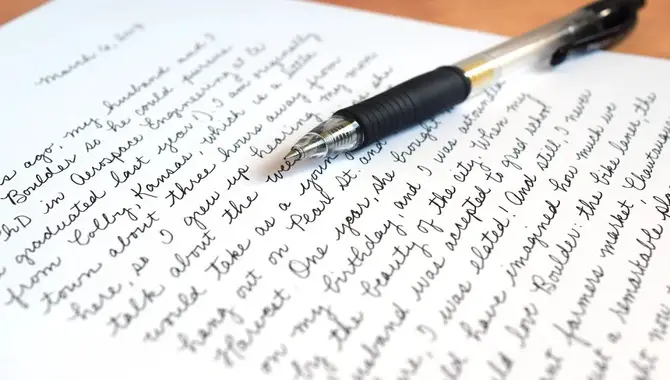 ago my husband and I
Boulder so he could pursue
PhD in Aerospace Engineering at
graduated last year!) I am originally
from Colby, Kansas which is a little
town about three hours away from
here, so I grew up hearing my mom
talk about the
would take as a young
hang out on Pearl St. and
Harvest. One year, she brought
on my birthday, and I was astounded
by the beauty of the city. When my
husband was accepted to grad school
I was elated! And still, I never
could have imagined how much we
would love Boulder: the bike lanes, the
farmers market, Chautauqua
just a remarkable